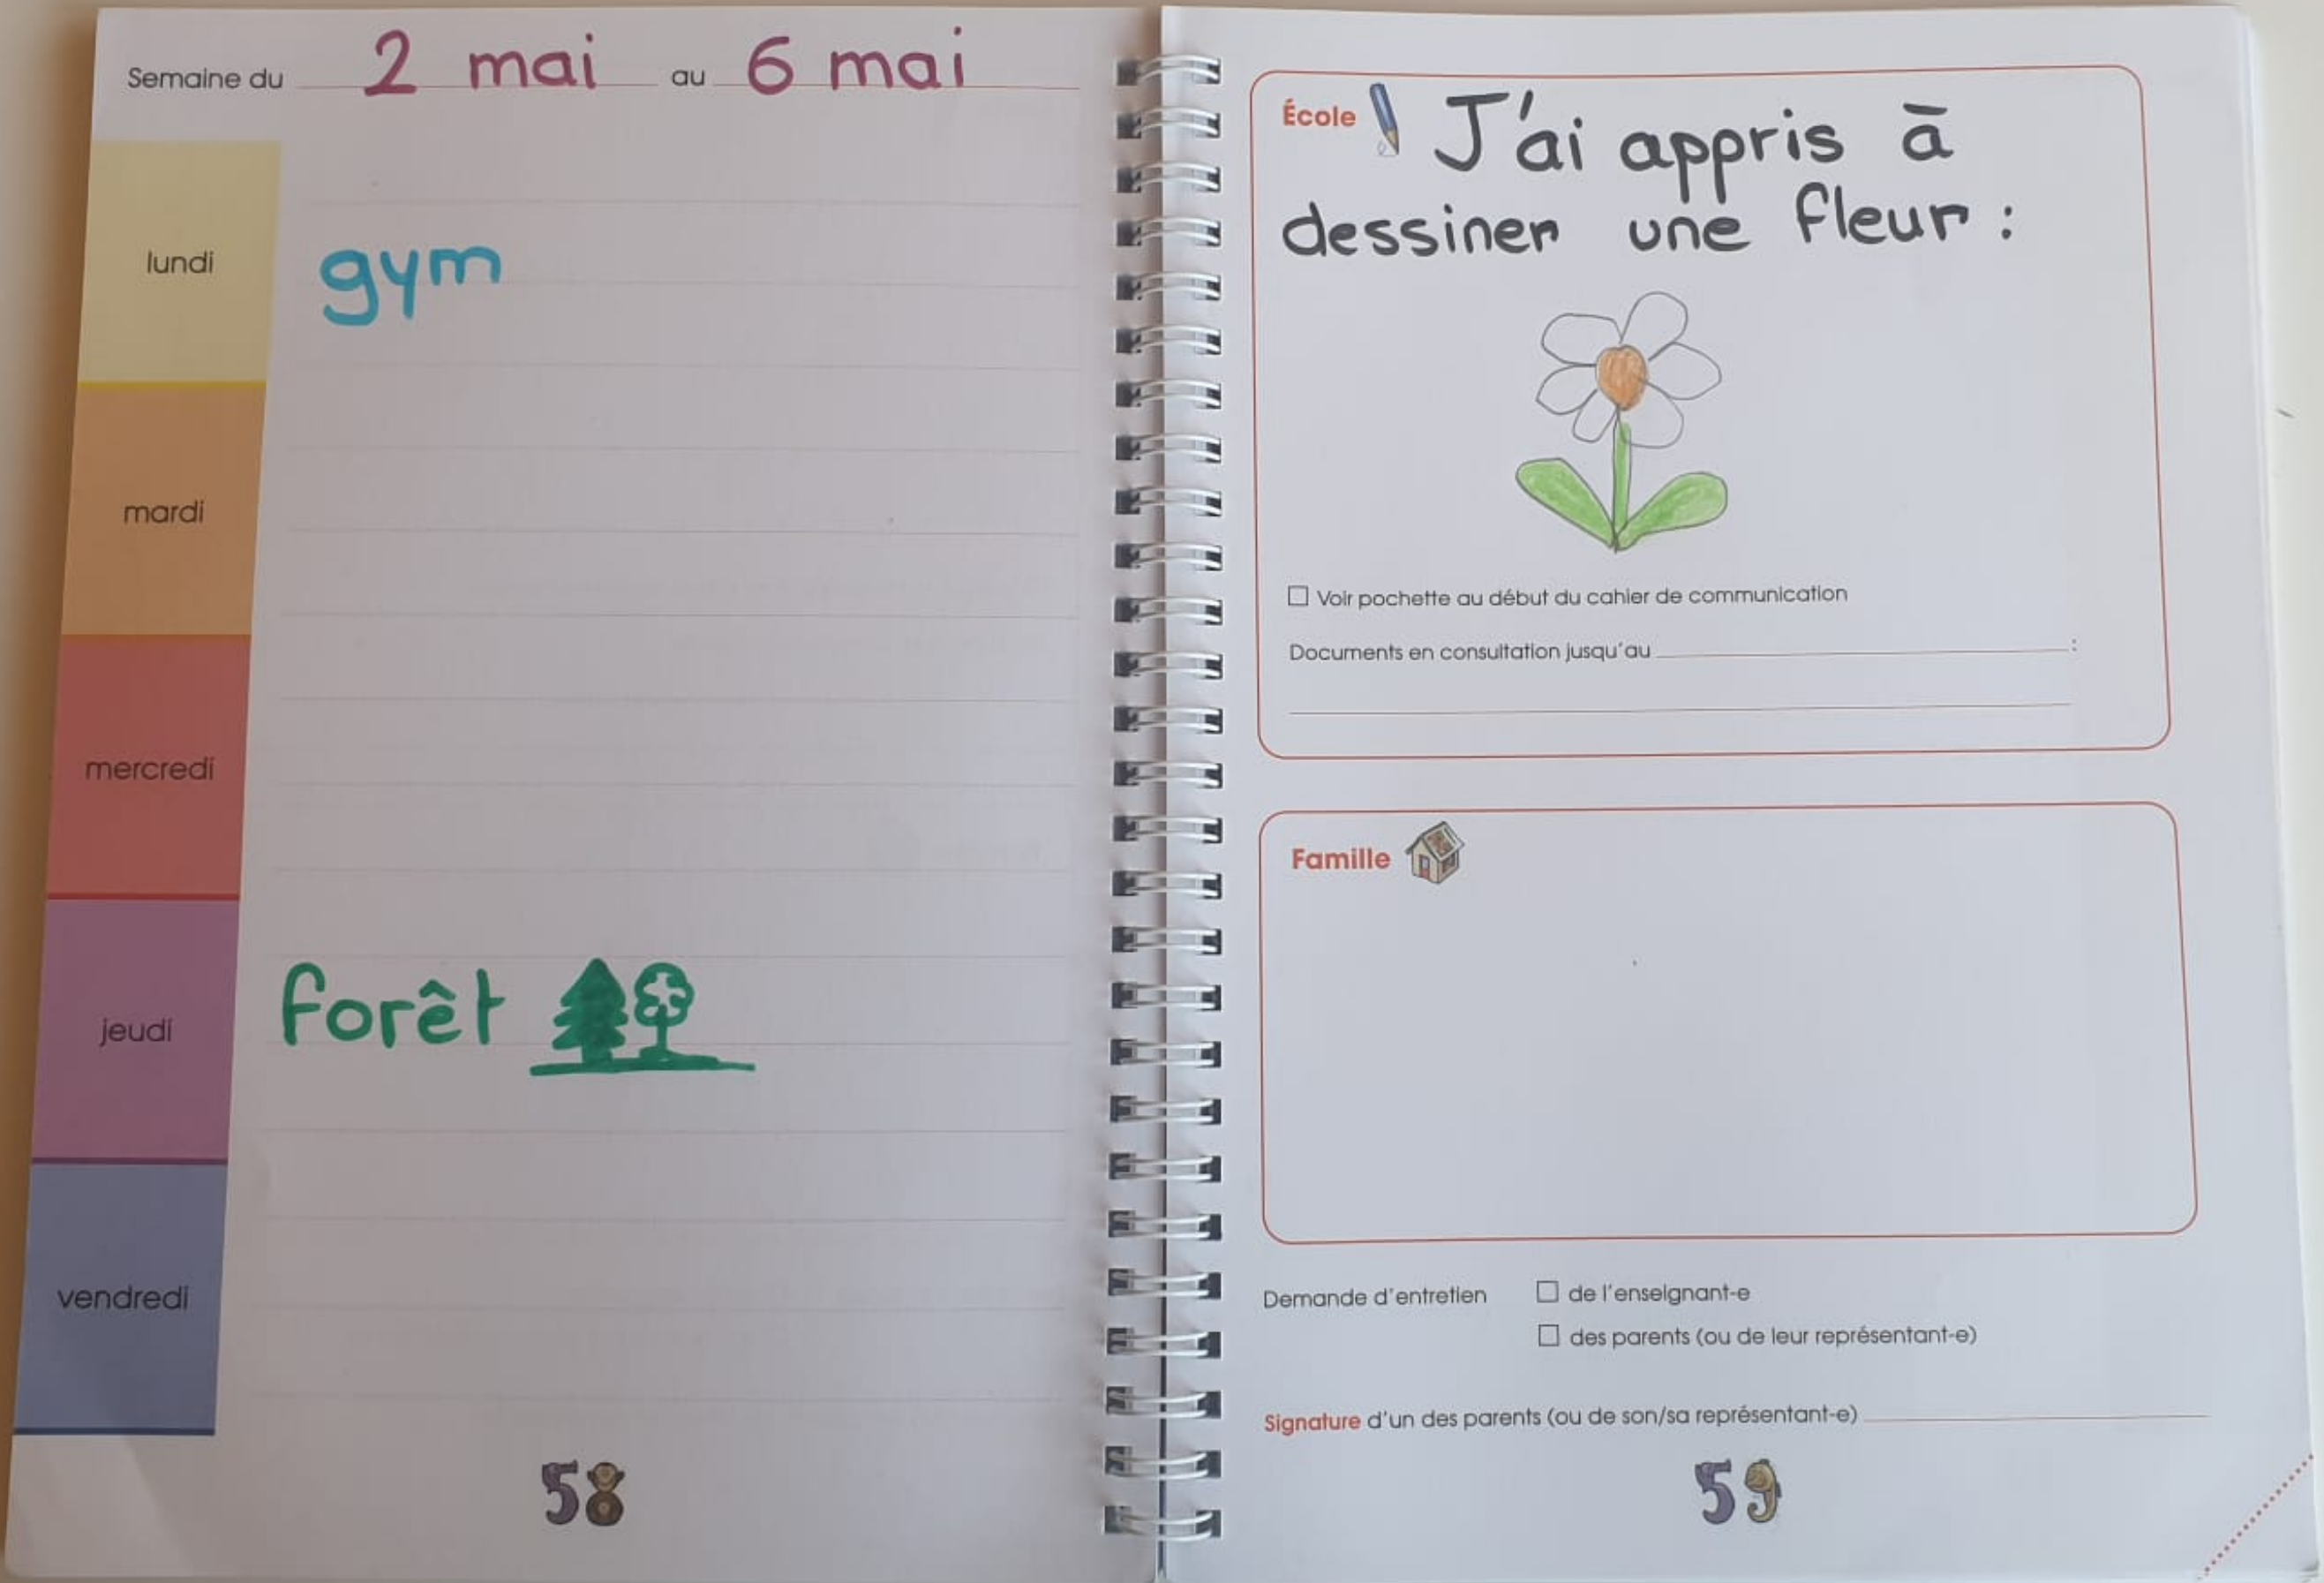 Semaine du 2 mai au 6 mai
lundi gym
mardi
mercredi
jeudi forêt
vendredi
58
École J'ai appris à
dessiner une fleur :
Voir pochette au début du cahier de communication
Documents en consultation jusqu'au :
Famille
Demande d'entretien de l'enseignant-e
des parents (ou de leur représentant-e)
Signature d'un des parents (ou de son/sa représentant-e)
59